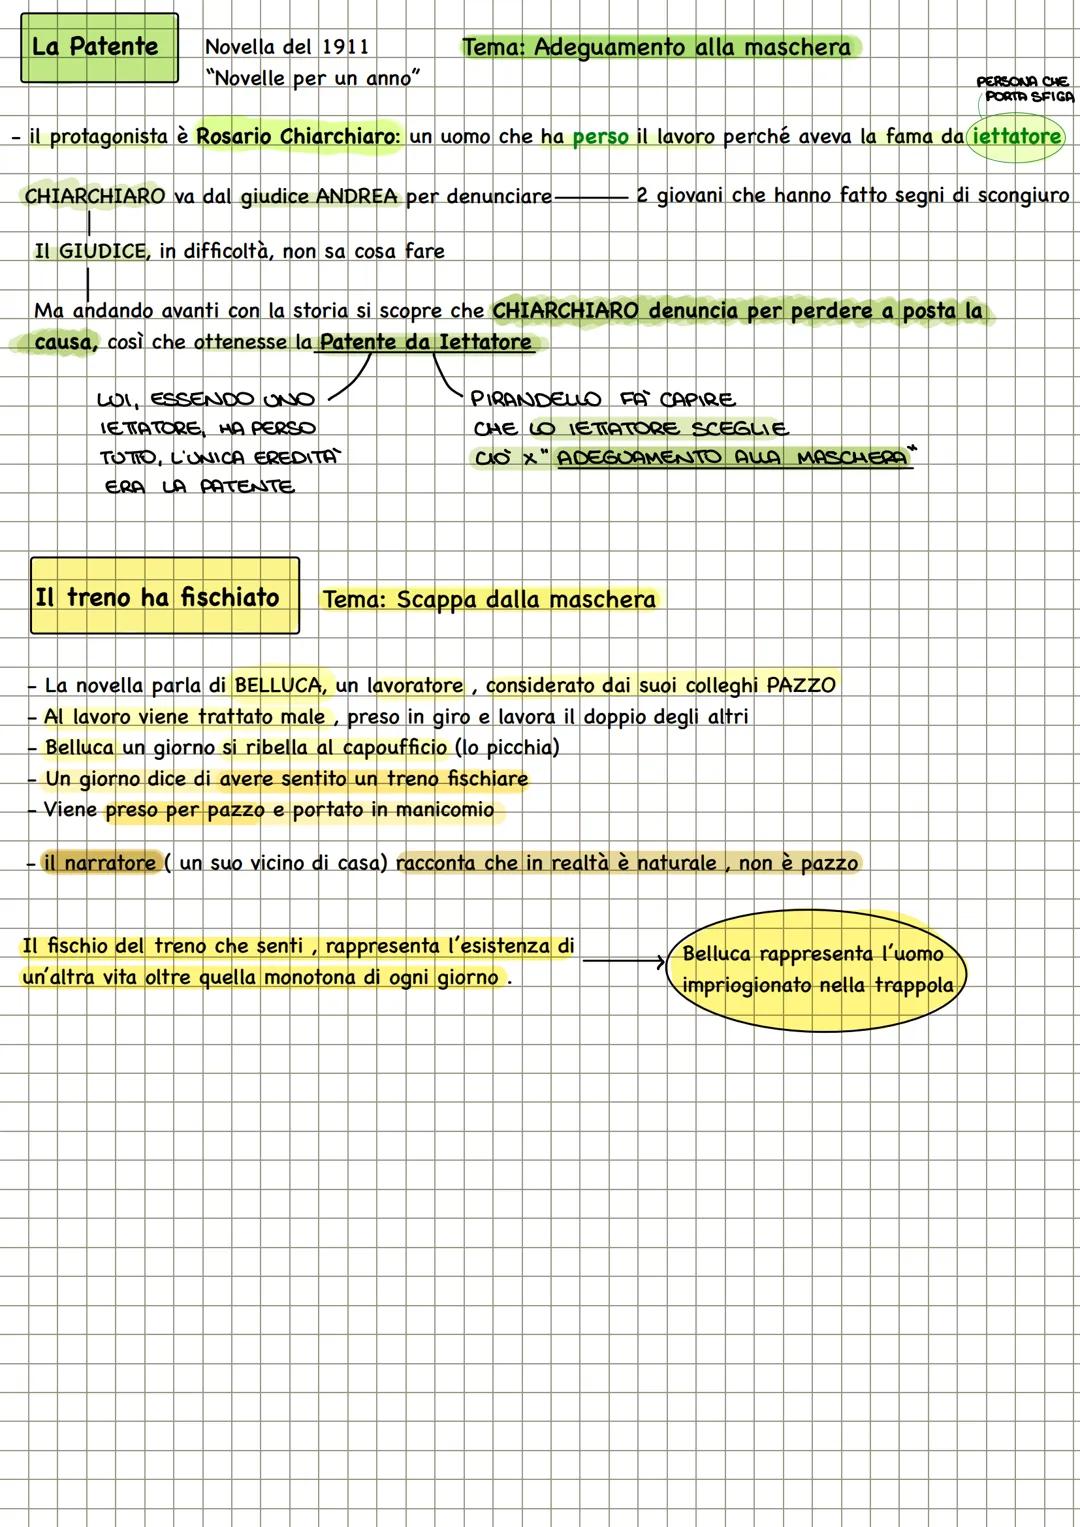 La Patente
Novella del 1911
"Novelle per un anno"
Tema: Adeguamento alla maschera
PERSONA CHE
PORTA SFIGA
- il protagonista è Rosario Chiarchiaro: un uomo che ha perso il lavoro perché aveva la fama da iettatore
CHIARCHIARO va dal giudice ANDREA per denunciare 2 giovani che hanno fatto segni di scongiuro
Il GIUDICE, in difficoltà, non sa cosa fare
Ma andando avanti con la storia si scopre che CHIARCHIARO denuncia per perdere a posta la
causa, così che ottenesse la Patente da Iettatore
LUI, ESSENDO UNO
IETTATORE, HA PERSO
TUTTO, L'UNICA EREDITA'
ERA LA PATENTE
PIRANDELLO FA' CAPIRE
CHE LO IETTATORE SCEGLIE
CIÒ X "ADEGUAMENTO ALLA MASCHERA"
Il treno ha fischiato
Tema: Scappa dalla maschera
- La novella parla di BELLUCA, un lavoratore , considerato dai suoi colleghi PAZZO
- Al lavoro viene trattato male , preso in giro e lavora il doppio degli altri
- Belluca un giorno si ribella al capoufficio (lo picchia)
- Un giorno dice di avere sentito un treno fischiare
- Viene preso per pazzo e portato in manicomio
- il narratore ( un suo vicino di casa) racconta che in realtà è naturale , non è pazzo
Il fischio del treno che senti , rappresenta l'esistenza di
un'altra vita oltre quella monotona di ogni giorno .
Belluca rappresenta l'uomo
impriogionato nella trappola